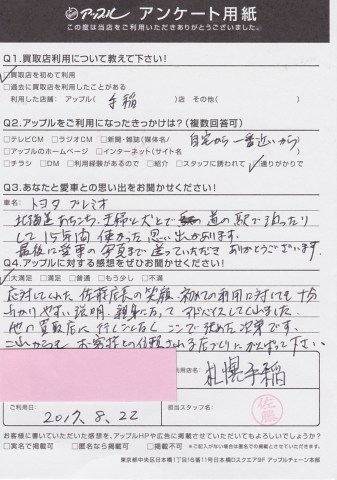 アップル アンケート用紙
この度は当店をご利用いただきありがとうございました。
Q1.買取店利用について教えて下さい!
□買取店を初めて利用
□過去に買取店を利用したことがある
利用した店舗: アップル( 手稲 )店 その他( )
Q2.アップルをご利用になったきっかけは?(複数回答可)
□テレビCM □ラジオCM □新聞・雑誌(媒体名/ 自宅から一番近いから)
□アップルのホームページ □インターネット(サイト名
□チラシ □DM □利用経験があるので □紹介 □スタッフに誘われて □通りがかりで
Q3.あなたと愛車との思い出をお聞かせください!
車名: トヨタ プレミオ
北海道あちこち、主婦と犬とで 道の駅で泊ったり
して15年間使かった思い出があります。
最後に愛車の写真まで送っていただき ありがとうございます。
Q4.アップルに対する感想をぜひお聞かせください!
□大満足 □満足 □普通 □もう少し □不満
応対してくれた佐藤店長の笑顔、初めての利用に対しても十分
分かりやすい説明、親身になってアドバイスしてくれました。
他の買取店に行くことなくここで決めた次第です。
これからもお客様との信頼される店づくりにがんばって下さい。
利用店名: 札幌手稲
ご利用日: 2017.8.22
担当スタッフ名: 佐藤
お客様に書いていただいた感想を、アップルHPや広告に掲載させていただいてもよろしいでしょうか?
□実名で掲載可 □匿名なら掲載可 □掲載不可 ※ご記入がない場合は匿名での掲載とさせていただきます。
東京都中央区日本橋1丁目16番11号日本橋Dスクエア3F アップルチェーン本部